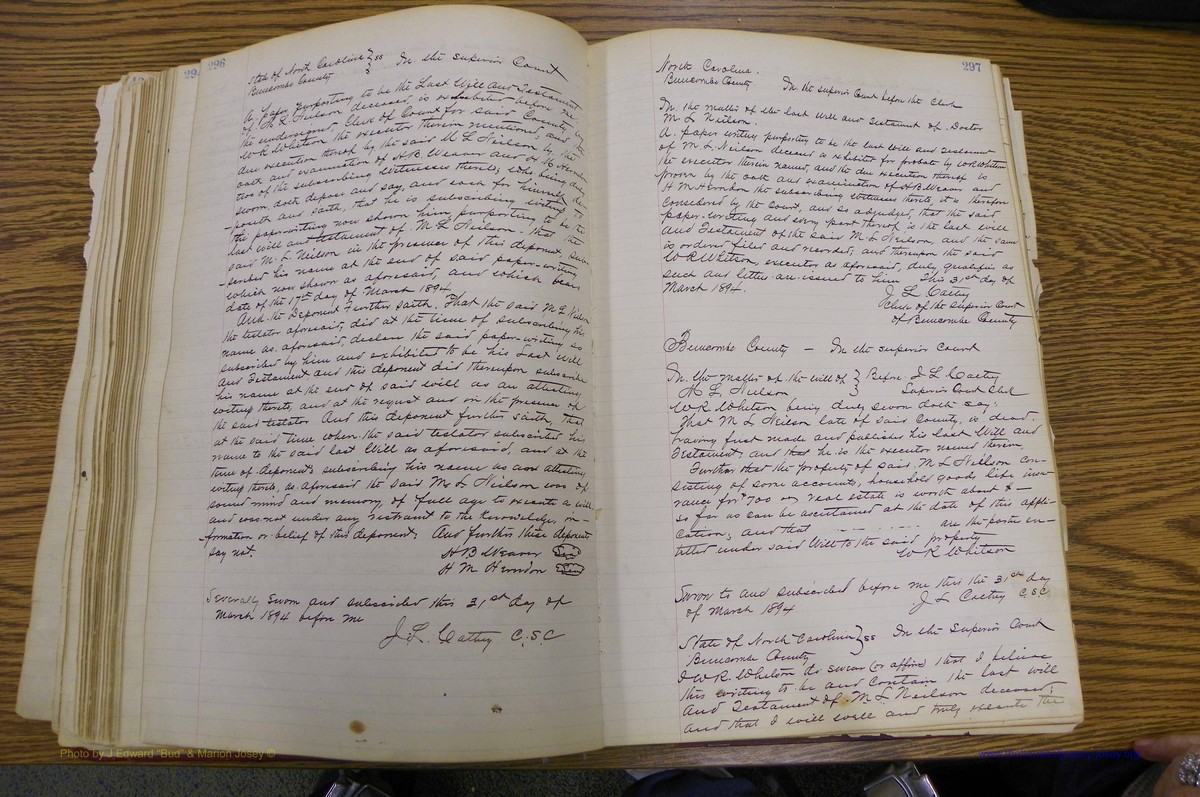 296
State of North Carolina } ss In the Superior Court
Buncombe County }
A paper purporting to be the Last Will and Testament
of M. L. Neilson deceased, is exhibited before me
the undersigned - Clerk of Court for said County, by
W R Whitson the executor therein mentioned, and the
due execution thereof by the said M L Neilson by the
oath and examination of H B Weaver and H M Herndon
two of the subscribing witnesses thereto, who being duly
sworn, doth depose and say, and each for himself de-
-poseth and saith, that he is subscribing witness to
the paper-writing now shown him purporting to be the
last will and testament of M. L Neilson. That the
said M. L Neilson in the presence of this deponent, sub-
-scribed his name at the end of said paper-writing
which now shown as aforesaid, and which bears
date of the 17th day of March 1894
And the Deponent Further saith, That the said M L Neilson
the testator aforesaid, did at the time of subscribing his
name as aforesaid, declare the said paper-writing so
subscribed by him and exhibited to be his Last Will
and Testament and this deponent did thereupon subscribe
his name at the end of said will as an attesting
witing thereto, and at the request and in the presence of
the said testator And this deponent further saith, that
at the said time when the said testator subscribed his
name to the said last Will as aforesaid, and at the
time of deponents subscribing his name as an attesting
witing thereto, as aforesaid the said M L Neilson was of
sound mind and memory, of full age to execute a will,
and was not under any restraint to the knowledge, in-
-formation or belief of this deponent, And further these deponents
say not.
H B Weaver Seal
H M Herndon
Severally sworn and subscribed this 31st day of
March 1894 before me
J. L. Cathey C.S.C
297
North Carolina.
Buncombe County In the superior Court before the Clerk
In the matter of the last will and testament of Doctor
M L Neilson.
A paper writing purporting to be the last Will and testament
of M. L Neilson deceased is exhibited for probate by W R Whitson
the executor therein named, and the due execution thereof is
proven by the oath and examination of H B Weaver and
H M Herndon the subscribing witnesses thereto, it is therefore
considered by the Court, and so adjudged, that the said
paper-writing and every part thereof is the last will
and Testament of the said M. L Neilson, and the same
is ordered filed and recorded, and thereupon the said
W R Whitson, executor as aforesaid, duly qualifies as
such and letters are issued to him This 31st day of
March 1894.
J. L Cathey
Clerk of the Superior Court
of Buncombe County
Buncombe County — In the superior Court
In the matter of the will of } Before J L Cathey
M L Neilson } Superior Court Clerk
W R Whitson being duly sworn doth say;
That M L Neilson late of said County, is dead,
having first made and publishes his last Will and
Testament, and that he is the executor named therein
Further that the property of said M L Neilson con-
sisting of some accounts, household goods life insu-
rance for $700 real estate is worth about $—
so far as can be ascertained at the date of this appli-
cation, and that are the parties en-
titled under said Will to the said property
W R Whitson
Sworn to and subscribed before me this the 31st day
of March 1894 J L Cathey C.S.C.
State of North Carolina } ss In the Superior Court
Buncombe County
I W R. Whitson do swear (or affirm) that I believe
this writing to be and contain the last will
and Testament of M. L Neilson deceased;
and that I will well and truly execute the
Photo by J Edward "Bud" & Marion Josey ©